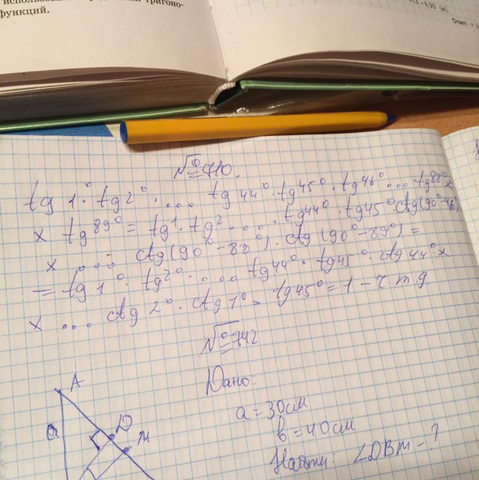 функций.
№ 710.
tg 1° · tg 2° · ... · tg 44° · tg 45° · tg 46° ... tg 88° x
x tg 89° = tg 1 · tg 2 · ... · tg 44° · tg 45° ctg(90° - 46)
x ... ctg(90° - 88°) · ctg(90° - 89°) =
= tg 1° · tg 2° · ... · tg 44° · tg 45° · ctg 44° x
x ... ctg 2° · ctg 1° = tg 45° = 1 - ч т д
№ 742
Дано:
a = 30см
b = 40см
Найти: ∠DBM - ?
A
a
D
M